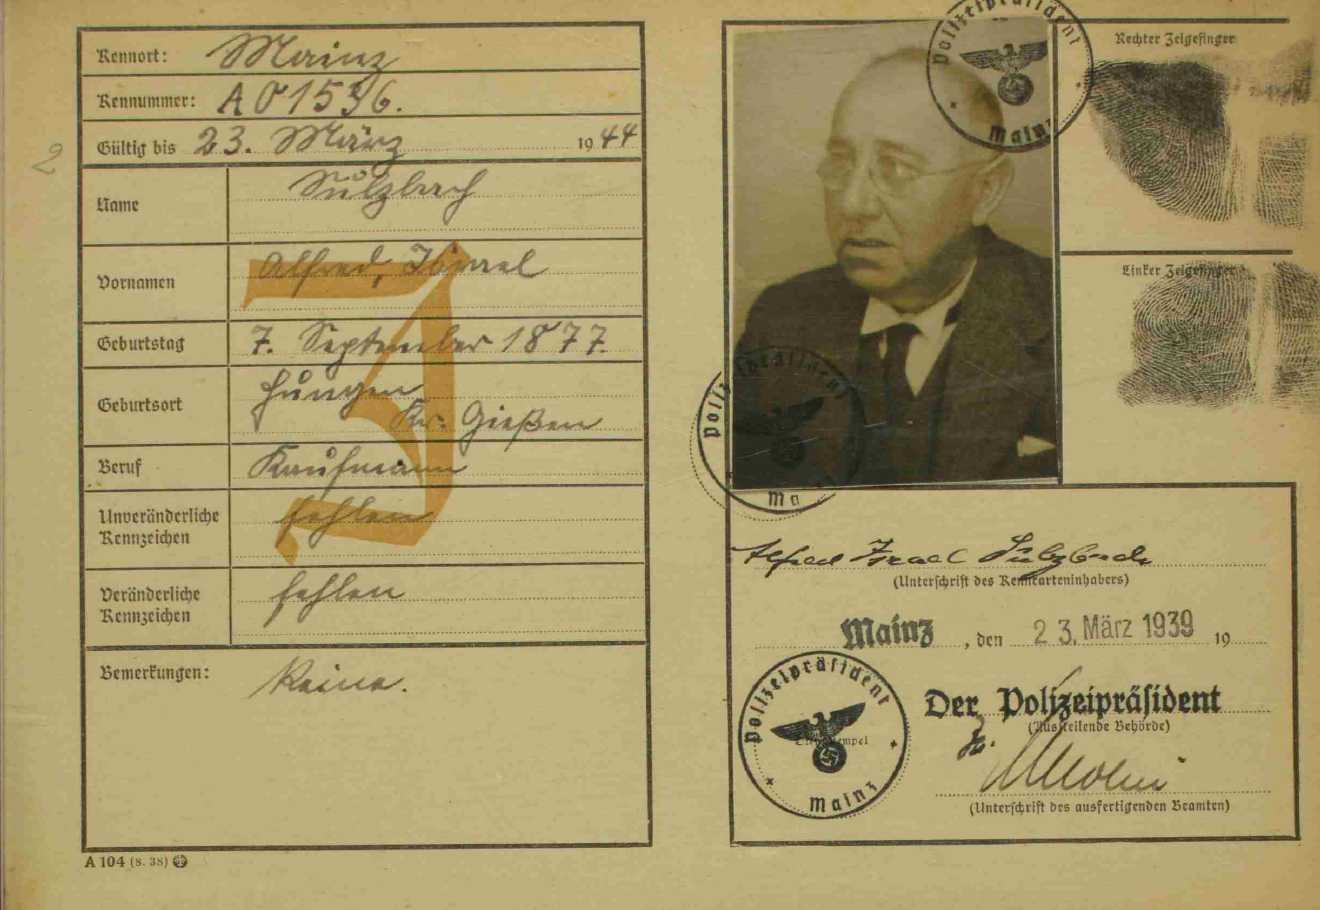 Kennort: Mainz
Kennummer: A 01536.
Gültig bis 23. März 1944
2
Name Sulzbach
Vornamen Alfred, Israel
Geburtstag 7. September 1877.
Geburtsort Hungen
Kr. Gießen
Beruf Kaufmann
Unveränderliche
Kennzeichen fehlen
Veränderliche
Kennzeichen fehlen
Bemerkungen: Keine.
J
A 104 (8. 38)
Polizeipräsident
Mainz
Rechter Zeigefinger
Linker Zeigefinger
Polizeipräsident
Mainz
Alfred Israel Sulzbach
(Unterschrift des Kennkarteninhabers)
Mainz, den 23. März 1939 19
Polizeipräsident
Mainz
Der Polizeipräsident
(Ausstellende Behörde)
(Unterschrift des ausfertigenden Beamten)